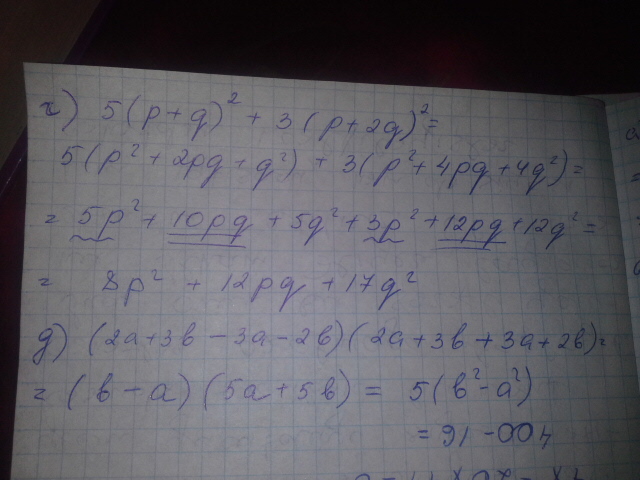 г) 5(p+q)² + 3(p+2q)²=
5(p²+2pq+q²) + 3(p²+4pq+4q²)=
= 5p²+ 10pq + 5q²+3p²+12pq+12q²=
= 8p² + 12pq +17q²
д) (2a+3b-3a-2b)(2a+3b+3a+2b)=
= (b-a)(5a+5b) = 5(b²-a²)